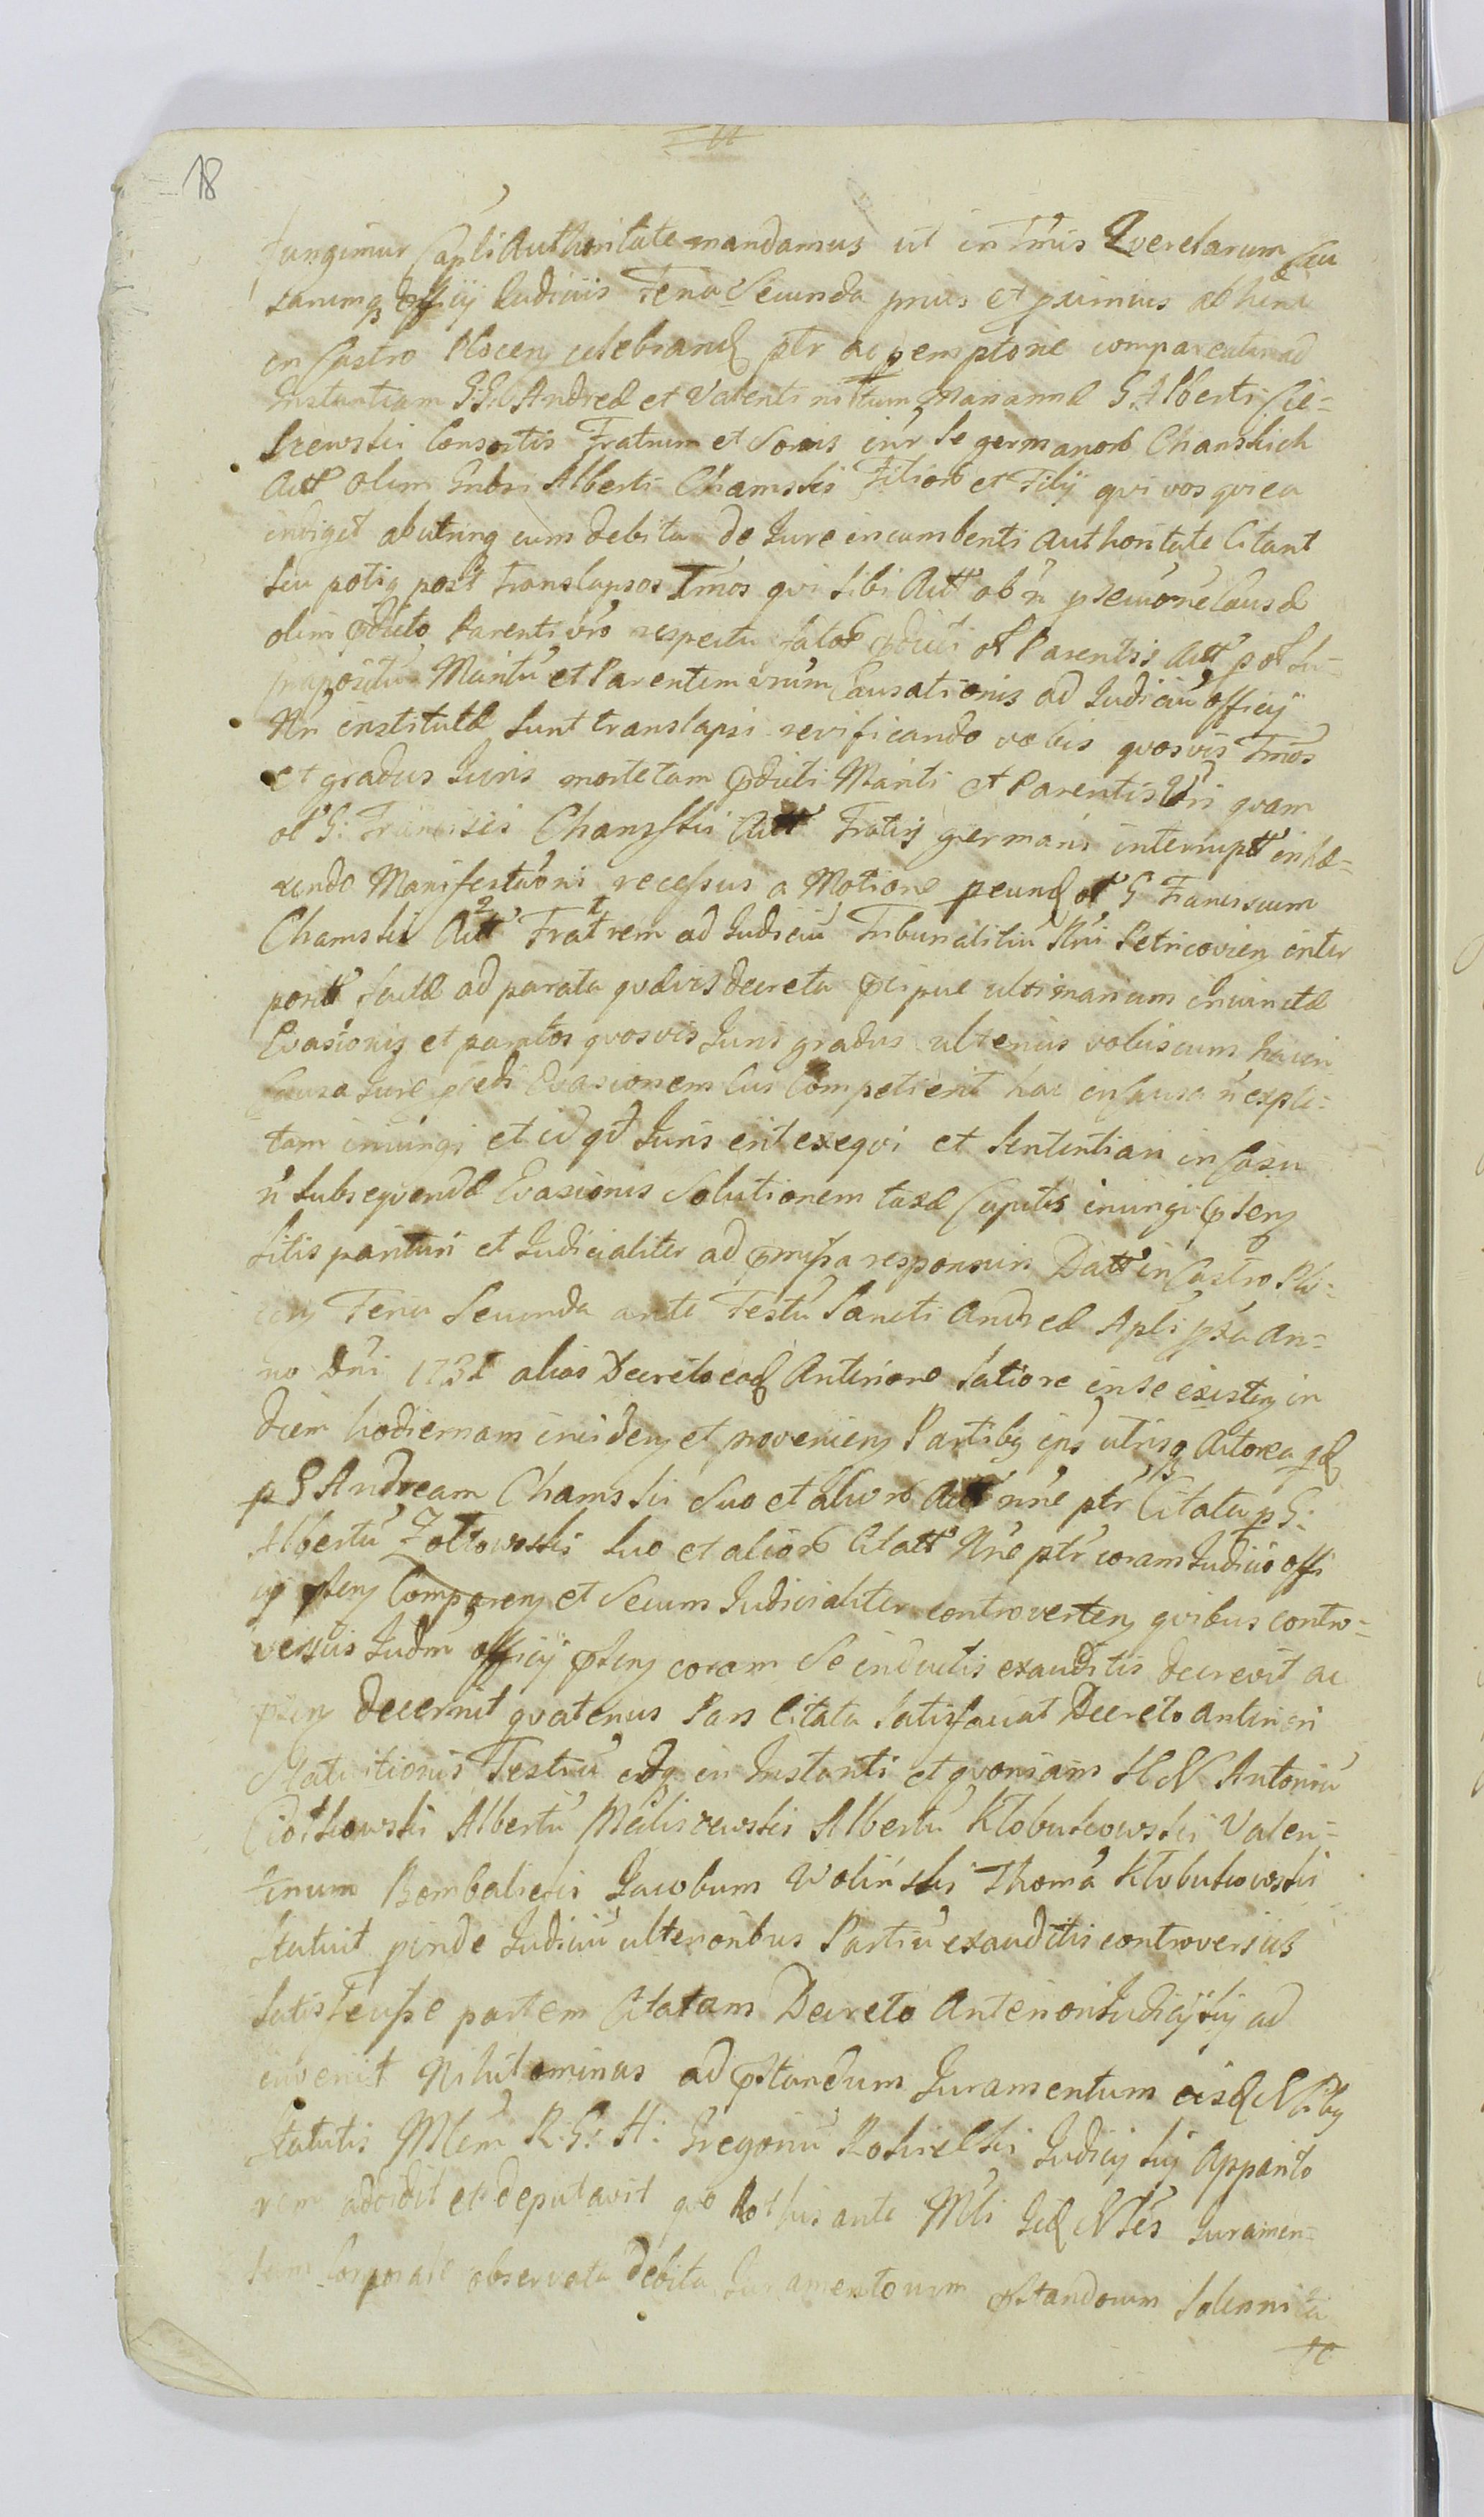 18
fungimur Capli Authoritate mandamus ut in Tmis Querelarum Cau
sarumq Officij Judicijs Feria Secunda prius et primius abhinc
in Castro Plocen celebrand ptr ac pemptorie compareatis ad
Instantiam GG Andreæ et Valentini tum Mariannæ G Alberti Cie=
szewski Consortis Fratrum et Sororis inr se germanor Chamskich
Act olim Gnbri Alberti Chamski Filior et Filij qui vos qui ea
indiget abutring cum debita de Jure incumbenti Authoritate Citant
seu potiq post translapsos Tmos qui sibi Att ob n psecuone Causæ
olim pdicto Parenti vro respectu pdicti ol Parentis Att p ol
Maritu et Parentem vrum Causationis ad Judiciu officij
Nri institutæ sunt translapsi revificando vobis quosvis Tmos
et gradus Juris morte tam pdicti Mariti et Parentis Vri quam
ol G: Francisci Chamski Att Fratris germani interrupt inhæ=
rendo Manifestaoni recessus a Motione peund ol G Franciscum
Chamski Att Fratrem ad Judiciu Tribunalitiu Rni Petricovien inter
posit factæ ad parata quævis decreta pcipue ultimarium
Evasionis et paratos quosvis Juris gradus ulterius vobiscum hac in
Causa Jure pcedi Evasionem cui Competierit hac in Causa n expli=
tam iniungi et id qd Juris erit exequi et Sententiari in Casu
n subsequendæ Evasionis Solutionem taxæ Capitis iniungi psens
sitis parituri et Judicialiter ad pmissa responsuri Datt in Castro Plo=
cen Feria Secunda ante Festu Sancti Andreæ Apli pxa An=
no Dni 1731 alias Decreto eod Anteriore latiore in se existen in
diem hodiernam inciden et provenien Partibq ips utrisq Actorea qd
p G Andream Chamski Suo et alior Att nne ptr Citata p G:
Albertu Zołtowski suo et alior Citatt Nne ptr coram Judicio offi
cij psens Comparen et Secum Judicialiter controverten quibus contro=
versiis Judm officij psens coram Se inductis exauditis decrevit ac
psen decernit quatenus Pars Citata Satisfaciat Decreto anteriori
Statuitionis Testiu idq in Instanti et quoniam NN Antoniu
Ciołkowski Albertu Meliszewski Albertu Kłobukowski Valen=
tinum Bombalicki Jacobum Woliński Thoma Kłobukowski
statuit pinde Judiciu ulterioribus Partiu exauditis controversiis
satisfecisse partem Citatam Decreto Anteriori Judicij sui ad
invenit Nihilominus ad pstandum Juramentum eisd Nlibq
statutis Mlem R: G: H: Gregoriu Rokicki Judicij sui Apparito
rem addidit et deputavit quo Rothisante Mli Iid Nles Juramen=
tum Corporale observata debita Juramentorum pstandorum Solennita
te